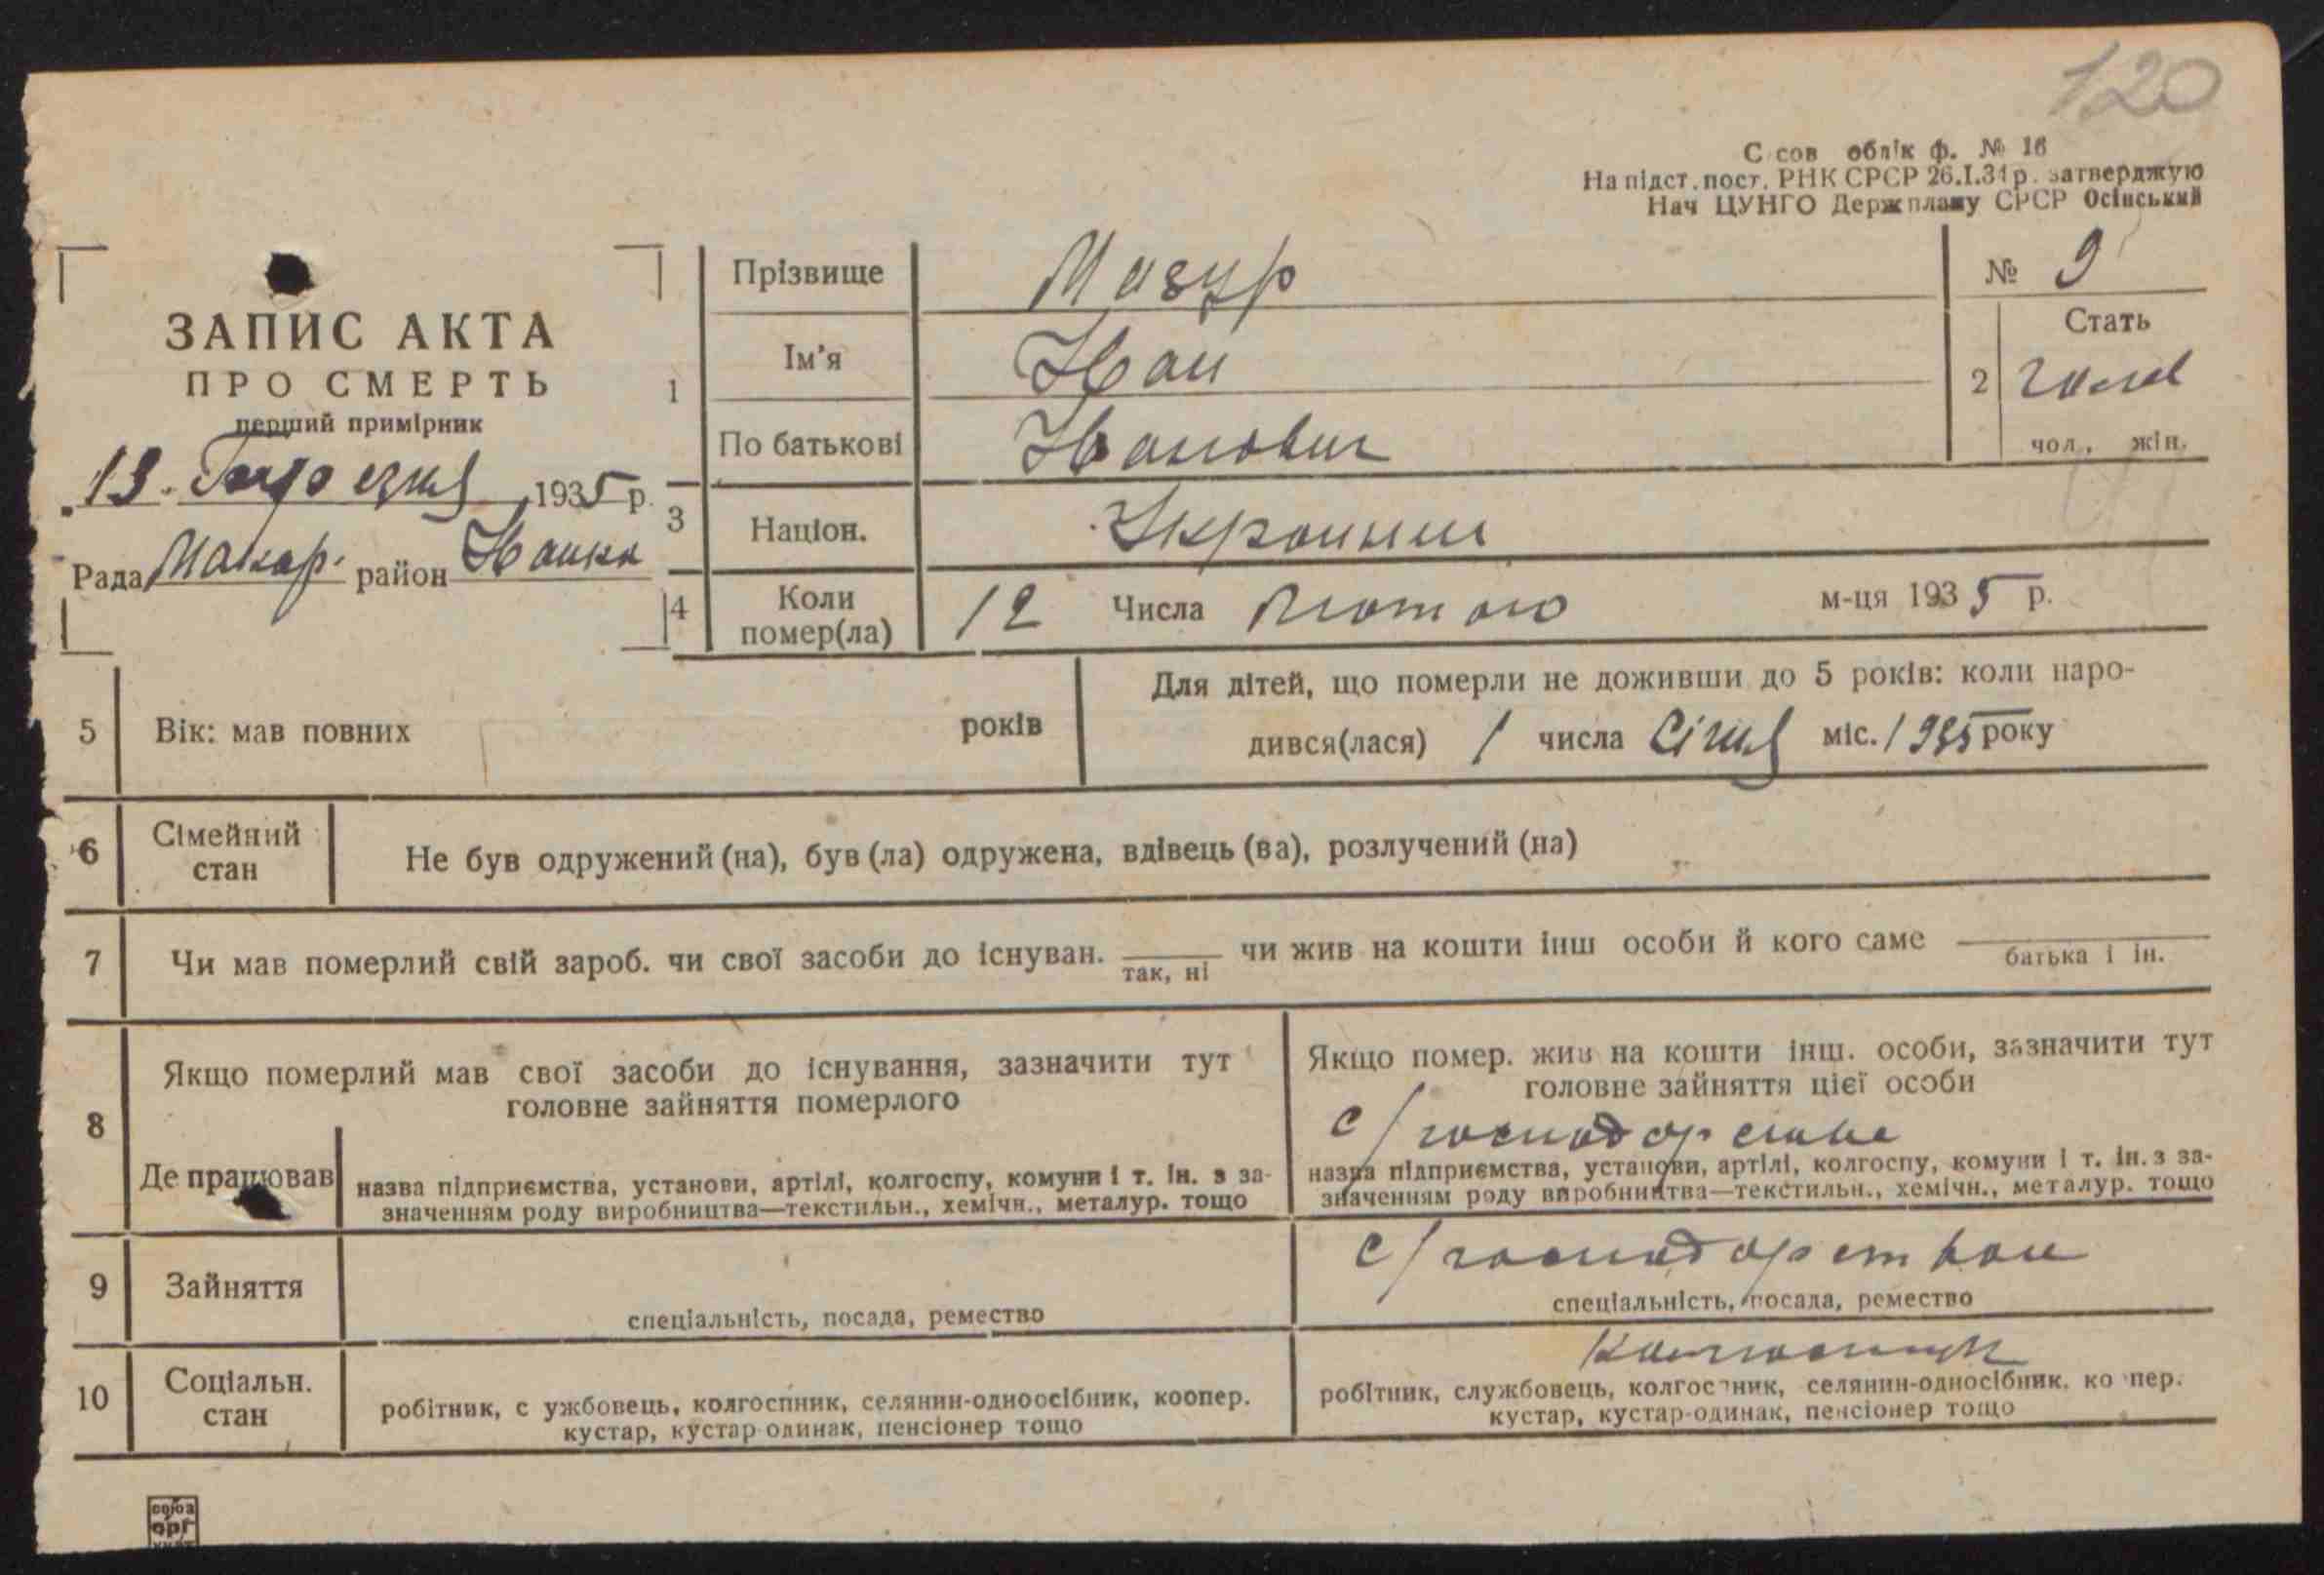 120
С сов облік ф. № 16
На підст. пост. РНК СРСР 26.I.31 р. затверджую
Нач ЦУНГО Держплану СРСР Осінський
ЗАПИС АКТА
ПРО СМЕРТЬ
перший примірник
13. 1935 р.
Рада Макар. район Іванкв
1
Прізвище Мазур
Ім'я Іван
По батькові Іванович
№ 9
2 Стать
чол
чол., жін.
3 Націон. Українець
4 Коли помер(ла) 12 Числа Лютого м-ця 1935 р.
5 Вік: мав повних років
Для дітей, що померли не доживши до 5 років: коли наро-
дився(лася) 1 числа Січня міс. 1935 року
6 Сімейний стан Не був одружений (на), був (ла) одружена, вдівець (ва), розлучений (на)
7 Чи мав померлий свій зароб. чи свої засоби до існуван. чи жив на кошти інш особи й кого саме
так, ні батька і ін.
8 Якщо померлий мав свої засоби до існування, зазначити тут
головне зайняття померлого
Де працював
назва підприємства, установи, артілі, колгоспу, комуни і т. ін. з за-
значенням роду виробництва—текстильн., хемічн., металур. тощо
Якщо помер. жив на кошти інш. особи, зазначити тут
головне зайняття цієї особи
с/господарстве
назва підприємства, установи, артілі, колгоспу, комуни і т. ін. з за-
значенням роду виробництва—текстильн., хемічн., металур. тощо
9 Зайняття
спеціальність, посада, ремество
с/господарством
спеціальність, посада, ремество
10 Соціальн. стан
робітник, с ужбовець, колгоспник, селянин-одноосібник, коопер.
кустар, кустар-одинак, пенсіонер тощо
Колгоспник
робітник, службовець, колгос ник, селянин-односібник, ко пер.
кустар, кустар-одинак, пенсіонер тощо
союз
орг